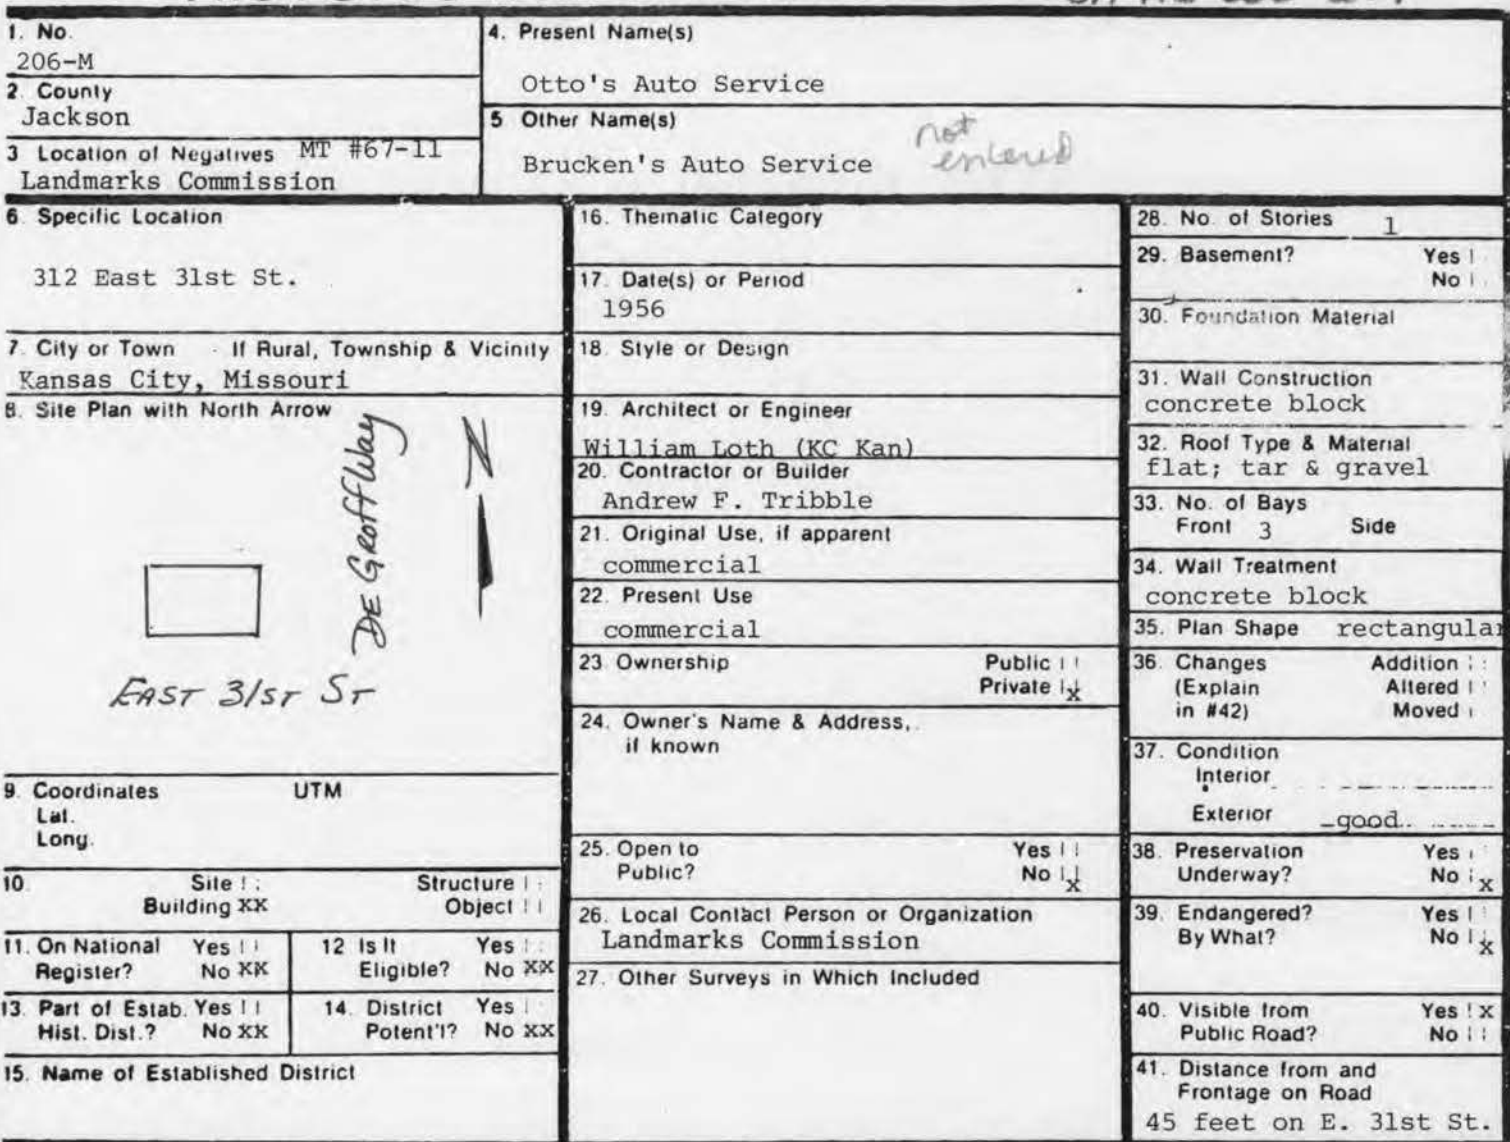 1. No.
206-M
2. County
Jackson
3 Location of Negatives MT #67-11
Landmarks Commission
4. Present Name(s)
Otto's Auto Service
5 Other Name(s)
Brucken's Auto Service
not
entered
6. Specific Location
312 East 31st St.
7. City or Town If Rural, Township & Vicinity
Kansas City, Missouri
8. Site Plan with North Arrow
N
DE GROFF WAY
EAST 31ST ST
9. Coordinates UTM
Lat.
Long.
10. Site Structure
Building XX Object
11. On National Yes
Register? No XX
12 Is It Yes
Eligible? No XX
13. Part of Estab. Yes
Hist. Dist.? No XX
14. District Yes
Potent'l? No XX
15. Name of Established District
16. Thematic Category
17. Date(s) or Period
1956
18. Style or Design
19. Architect or Engineer
William Loth (KC Kan)
20. Contractor or Builder
Andrew F. Tribble
21. Original Use, if apparent
commercial
22. Present Use
commercial
23. Ownership Public
Private x
24. Owner's Name & Address,
if known
25. Open to Yes
Public? No x
26. Local Contact Person or Organization
Landmarks Commission
27. Other Surveys in Which Included
28. No. of Stories 1
29. Basement? Yes
No
30. Foundation Material
31. Wall Construction
concrete block
32. Roof Type & Material
flat; tar & gravel
33. No. of Bays
Front 3 Side
34. Wall Treatment
concrete block
35. Plan Shape rectangular
36. Changes Addition
(Explain Altered
in #42) Moved
37. Condition
Interior
Exterior good
38. Preservation Yes
Underway? No x
39. Endangered? Yes
By What? No x
40. Visible from Yes x
Public Road? No
41. Distance from and
Frontage on Road
45 feet on E. 31st St.